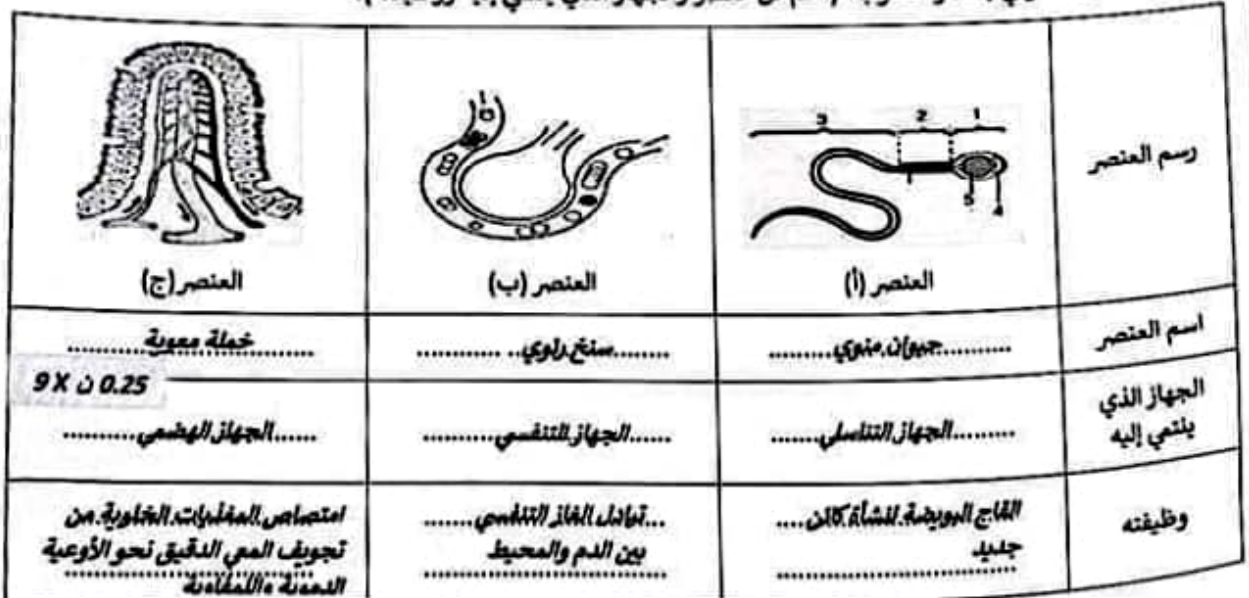 رسم العنصر
3 2 1
5 4
العنصر (أ)
العنصر (ب)
العنصر (ج)
اسم العنصر
حيوان منوي
سنخ رئوي
خملة معوية
0.25 ن X 9
الجهاز الذي
ينتمي إليه
الجهاز التناسلي
الجهاز التنفسي
الجهاز الهضمي
وظيفته
القاح البويضة لنشأة كائن
جديد
تبادل الغاز التنفسي
بين الدم والمحيط
امتصاص المغذيات الخلوية من
تجويف المعي الدقيق نحو الأوعية
الدموية واللمفاوية